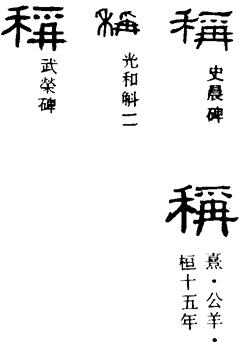 稱
史晨碑
稱
熹・公羊・
桓十五年
稱
光和斛二
稱
武榮碑